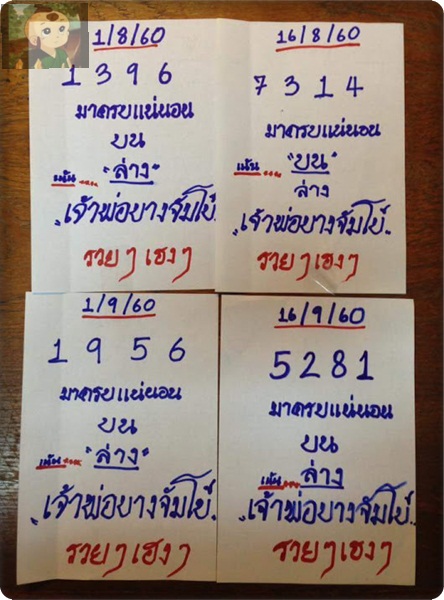 1/8/60
1 3 9 6
มาครบแน่นอน
บน
เน้น.... "ล่าง"
"เจ้าพ่อบางจัมโบ้"
รวยๆเฮงๆ
16/8/60
7 3 1 4
มาครบแน่นอน
เน้น.... "บน"
ล่าง
"เจ้าพ่อบางจัมโบ้"
รวยๆเฮงๆ
1/9/60
1 9 5 6
มาครบแน่นอน
บน
เน้น.... "ล่าง"
"เจ้าพ่อบางจัมโบ้"
รวยๆเฮงๆ
16/9/60
5281
มาครบแน่นอน
บน
เน้น.... ล่าง
"เจ้าพ่อบางจัมโบ้"
รวยๆเฮงๆ